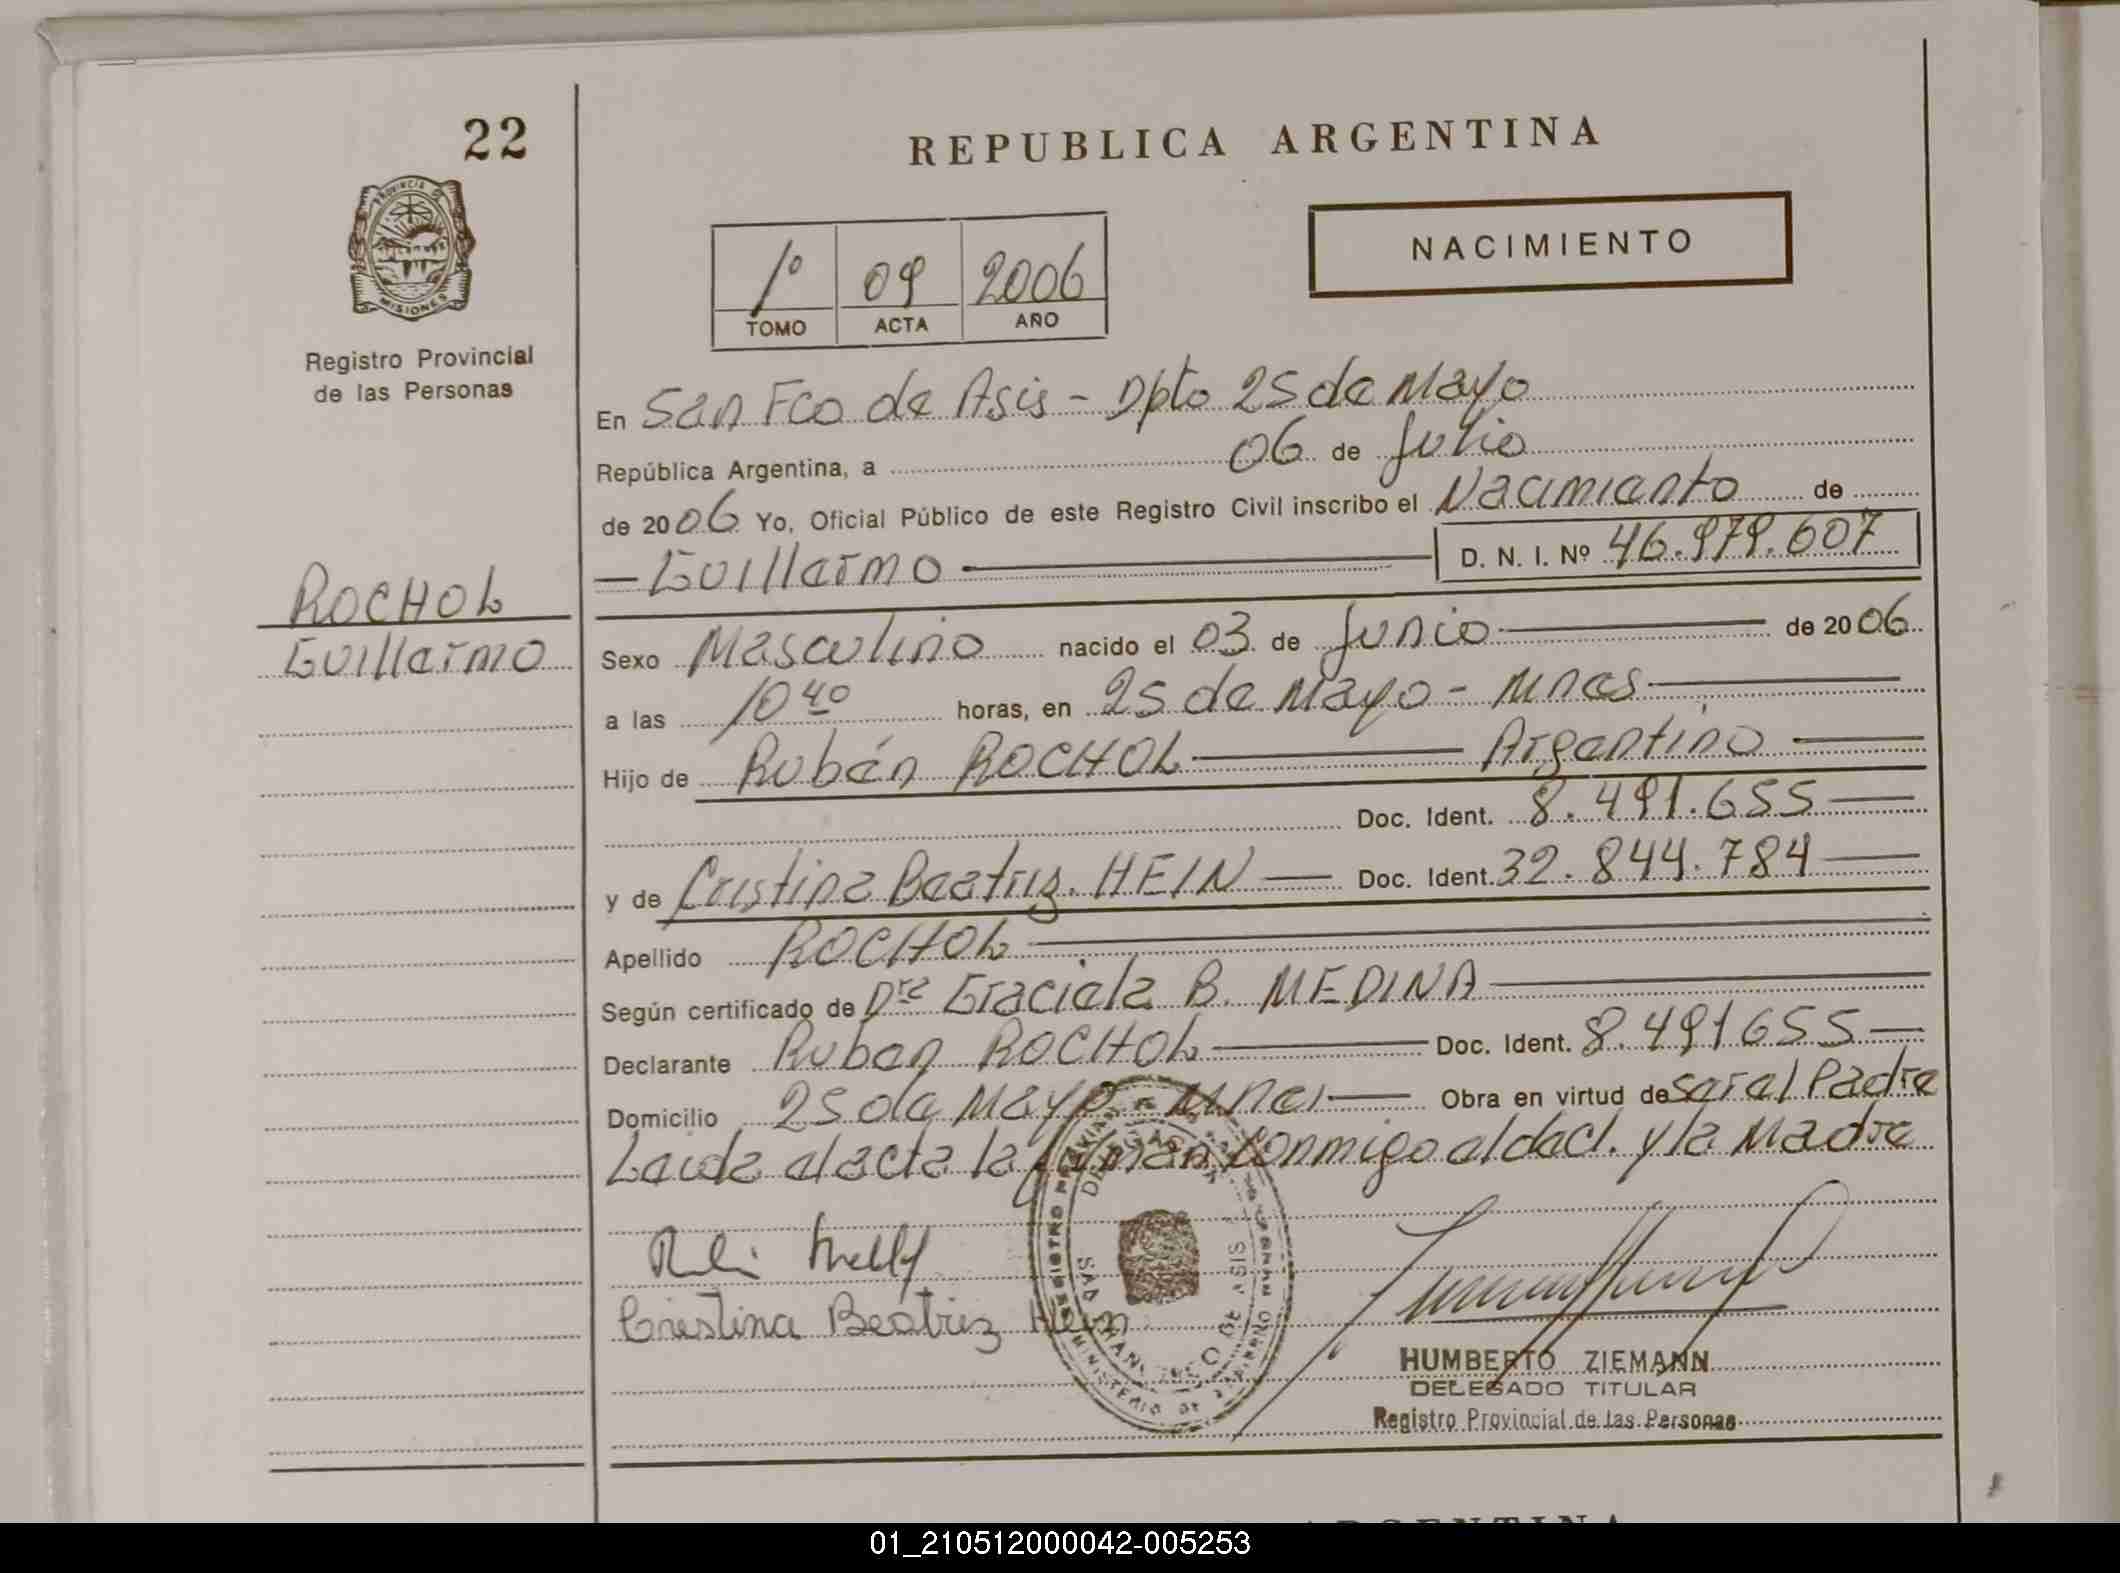 22
REPUBLICA ARGENTINA
PROVINCIA DE
MISIONES
Registro Provincial
de las Personas
NACIMIENTO
1º 09 2006
TOMO ACTA AÑO
En San Fco de Asis - Dpto 25 de Mayo
República Argentina, a 06 de Julio
de 2006 Yo, Oficial Público de este Registro Civil inscribo el Nacimiento de
Guillermo D. N. I. Nº 46.979.607
ROCHOL
Guillermo
Sexo Masculino nacido el 03 de Junio de 2006
a las 10 40 horas, en 25 de Mayo - Mnes
Hijo de Rubén ROCHOL Argentino
Doc. Ident. 8.491.655
y de Cristina Beatriz HEIN Doc. Ident. 32.844.784
Apellido ROCHOL
Según certificado de Dra Graciela B. MEDINA
Declarante Ruben ROCHOL Doc. Ident. 8.491655
Domicilio 25 de Mayo - Mnes Obra en virtud de ser el Padre
Leida el acta la firman conmigo el decl. y la Madre
Cristina Beatriz Hein
HUMBERTO ZIEMANN
DELEGADO TITULAR
Registro Provincial de las Personas
ARGENTINA
01_210512000042-005253